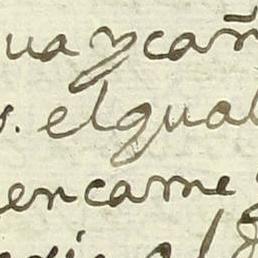 ua y cañ
s. el qual
encarne